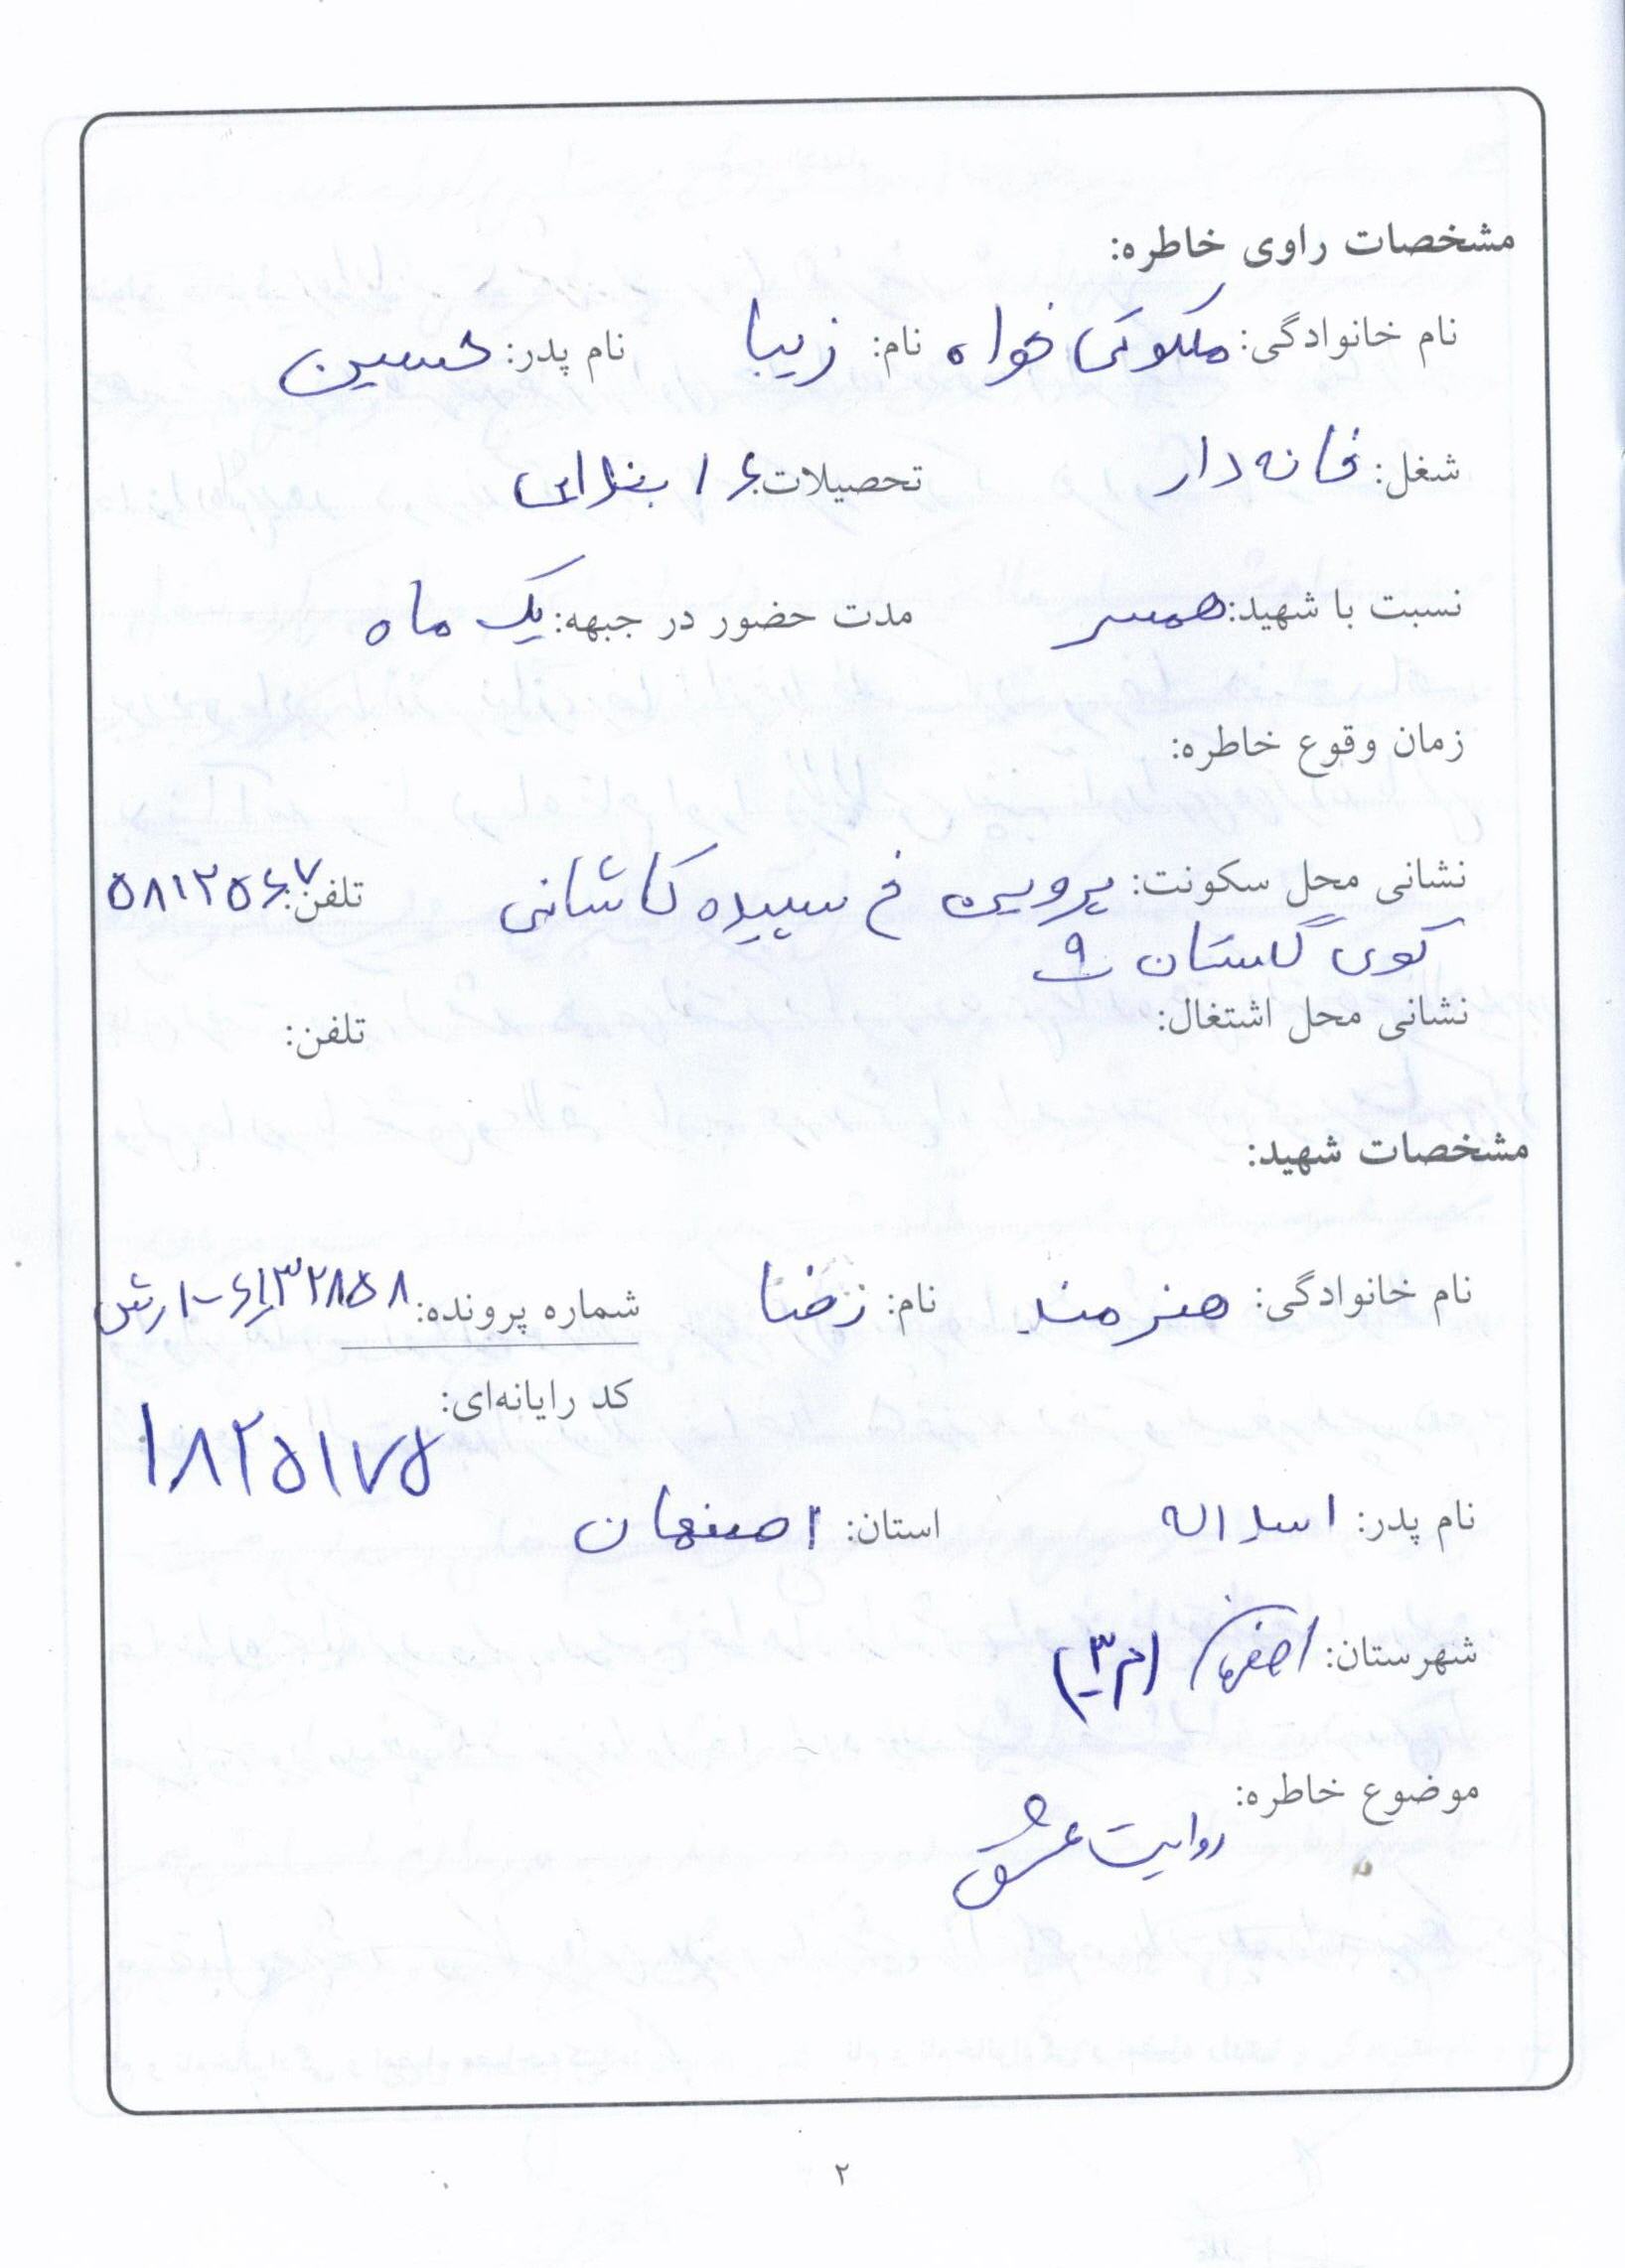 مشخصات راوی خاطره:
نام خانوادگی: ملکوتی خواه نام: زیبا نام پدر: حسین
شغل: خانه دار تحصیلات: ۶ ابتدایی
نسبت با شهید: همسر مدت حضور در جبهه: یک ماه
زمان وقوع خاطره:
نشانی محل سکونت: پروین خ سپیده کاشانی تلفن: ۵۸۱۲۵۶۷
کوی گلستان ۹
نشانی محل اشتغال: تلفن:
مشخصات شهید:
نام خانوادگی: هنرمند نام: رضا شماره پرونده: ۶۱۳۲۸۵۸-۱ ارتش
کد رایانه‌ای:
۱۸۲۵۱۷۵
نام پدر: اسداله استان: اصفهان
شهرستان: اصفهان (م۳)
موضوع خاطره:
روایت عشق
۲